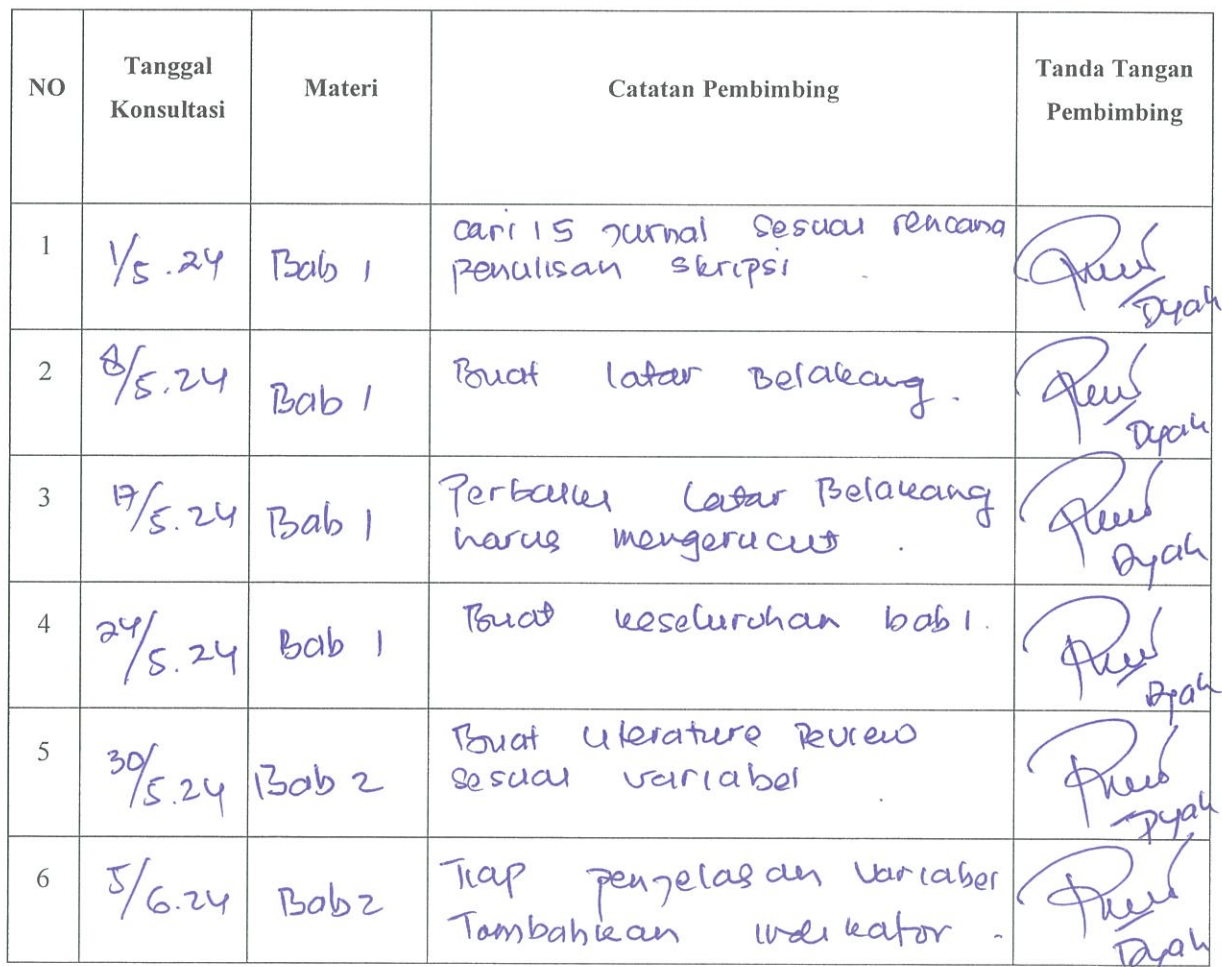 NO Tanggal Konsultasi Materi Catatan Pembimbing Tanda Tangan Pembimbing
1 1/5.24 Bab 1 cari 15 jurnal sesuai rencana
penulisan skripsi.
Dyah
2 8/5.24 Bab 1 Buat latar Belakang.
Dyah
3 17/5.24 Bab 1 Perbaiki Latar Belakang
harus mengerucut.
Dyah
4 24/5.24 Bab 1 Buat keseluruhan bab 1.
Dyah
5 30/5.24 Bab 2 Buat literature Review
sesuai variabel.
Dyah
6 5/6.24 Bab 2 Tiap penjelasan variabel
Tambahkan indikator.
Dyah